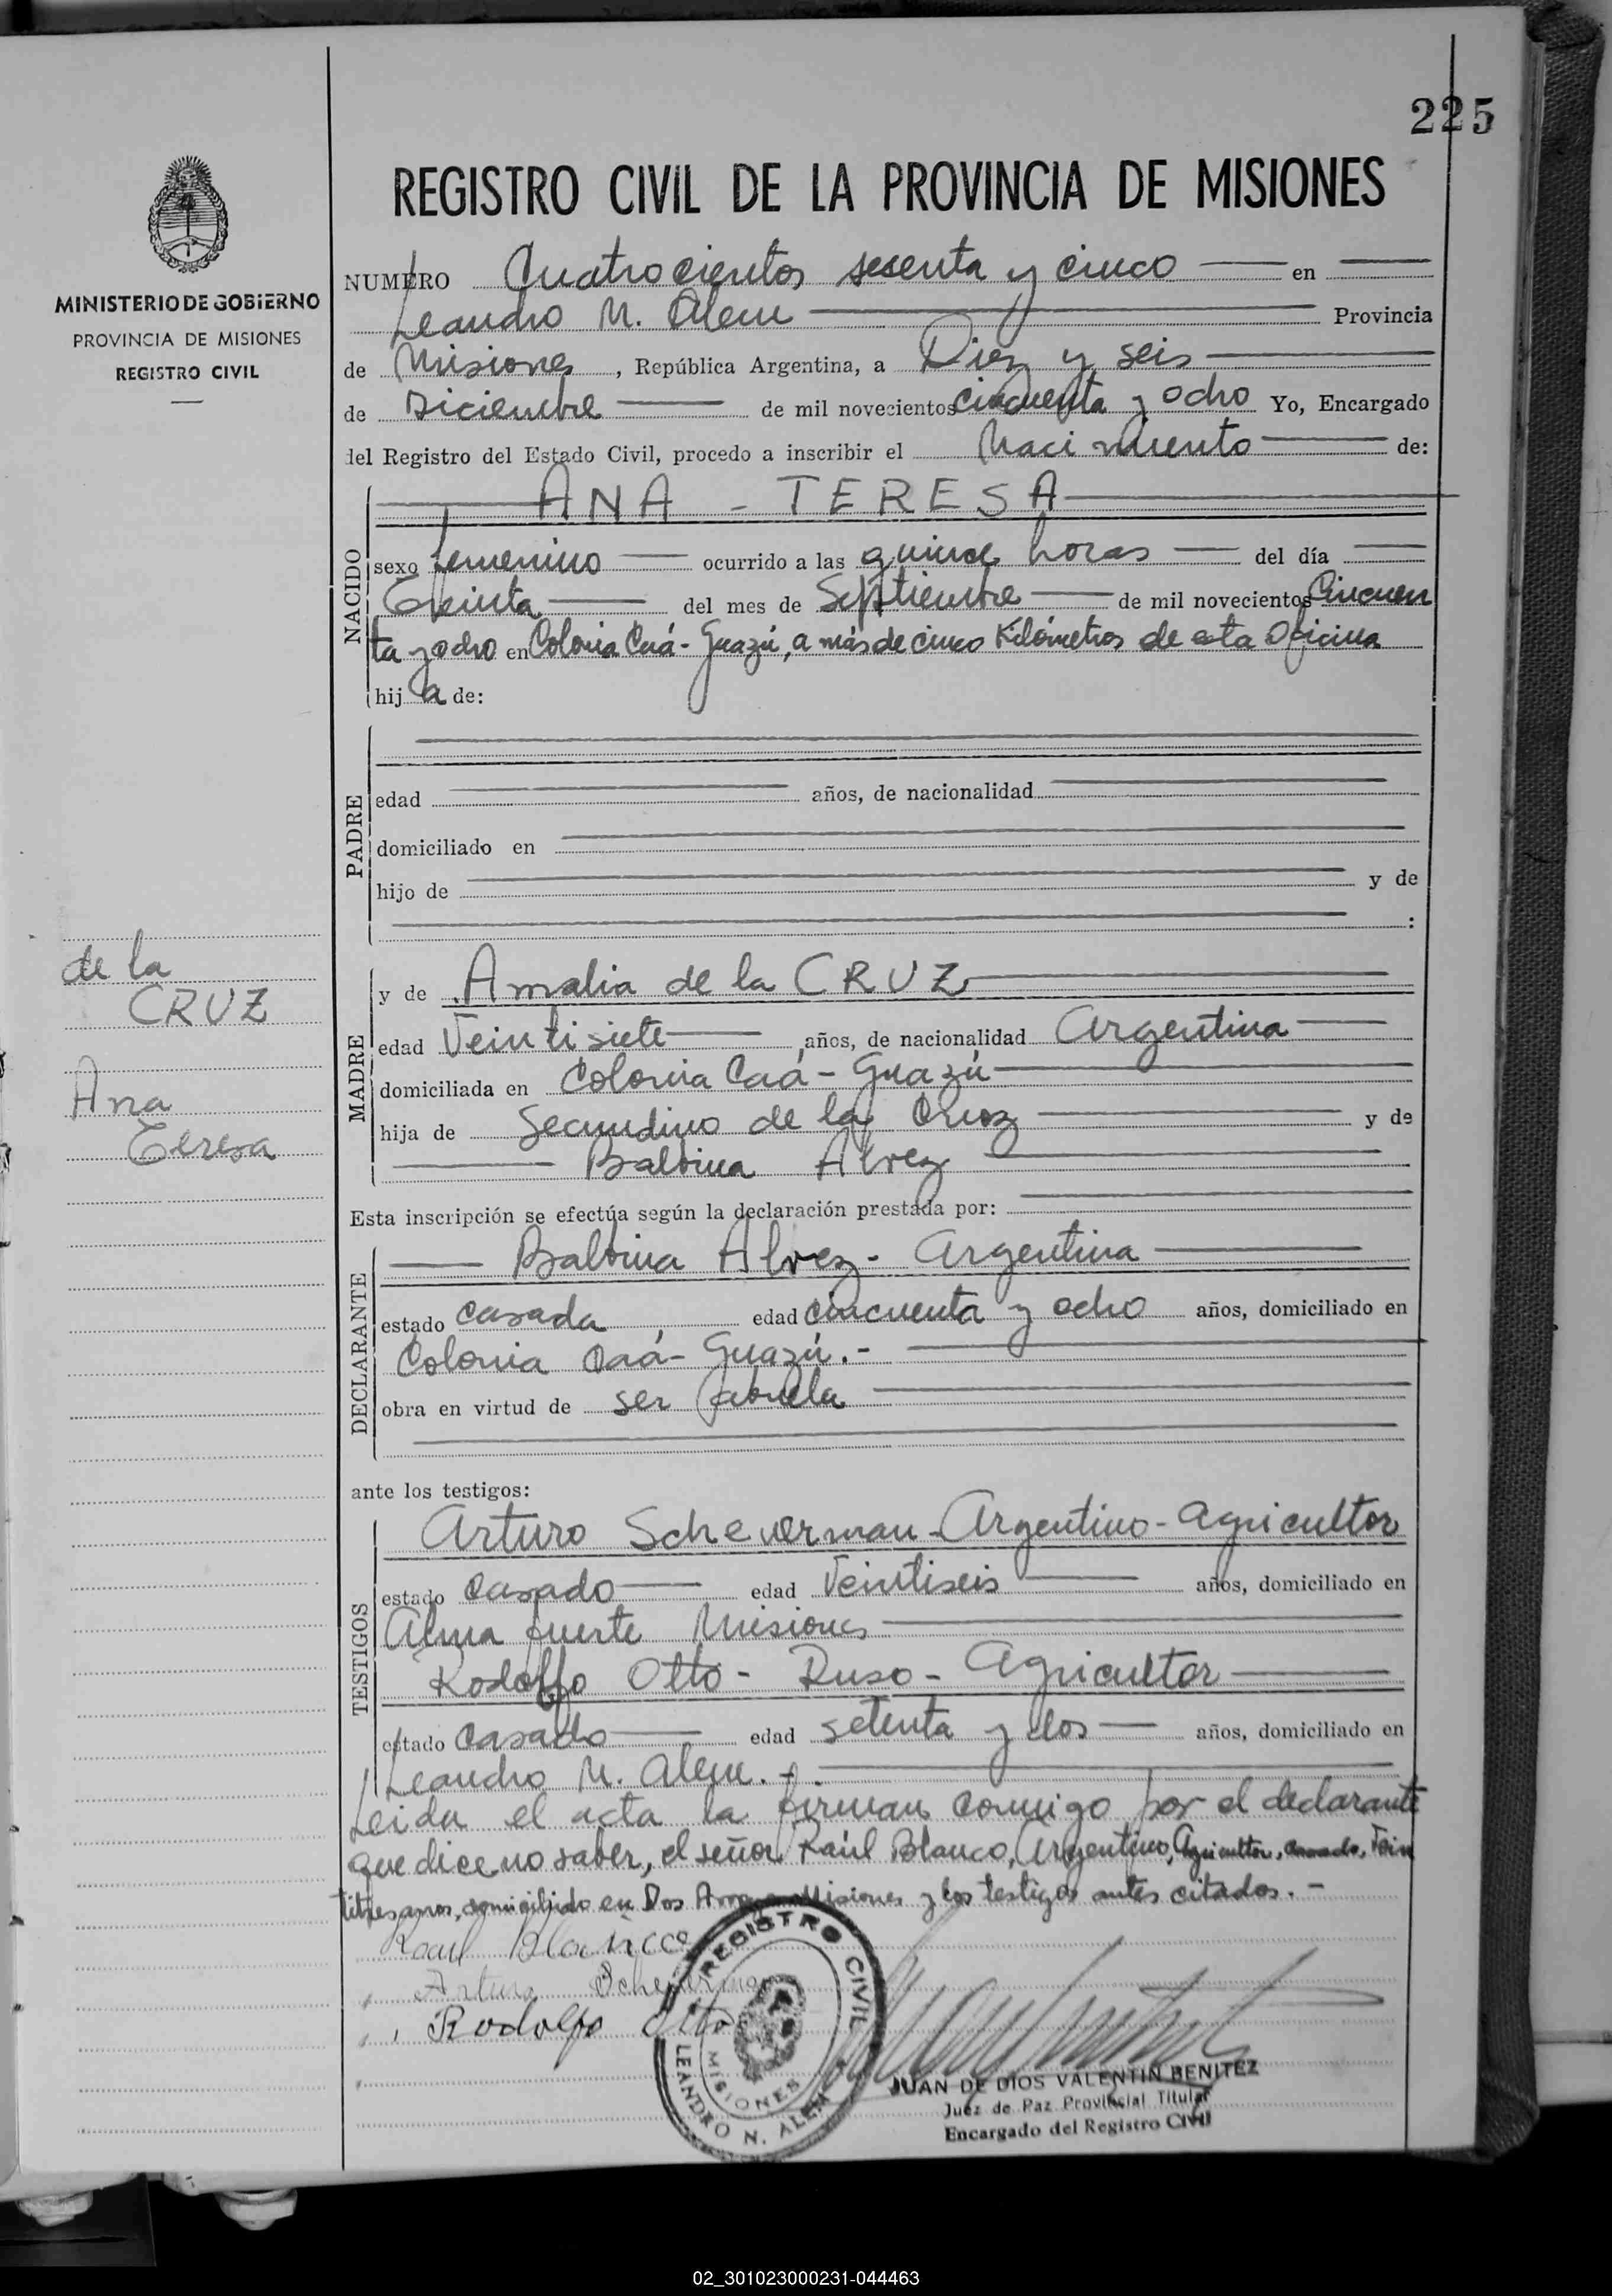 225
REGISTRO CIVIL DE LA PROVINCIA DE MISIONES
MINISTERIO DE GOBIERNO
PROVINCIA DE MISIONES
REGISTRO CIVIL
NUMERO Cuatrocientos sesenta y cinco en
Leandro N. Alem Provincia
de Misiones, República Argentina, a Diez y seis
de Diciembre de mil novecientos cincuenta y ocho Yo, Encargado
del Registro del Estado Civil, procedo a inscribir el Nacimiento de:
NACIDO
ANA - TERESA
sexo femenino ocurrido a las quince horas del día
Treinta del mes de Septiembre de mil novecientos Cincuen
ta y ocho en Colonia Caá-Guazú, a más de cinco Kilómetros de esta Oficina
hij a de:
PADRE
edad años, de nacionalidad
domiciliado en
hijo de y de
:
de la
CRUZ
Ana
Teresa
MADRE
y de Amalia de la CRUZ
edad Veintisiete años, de nacionalidad Argentina
domiciliada en Colonia Caá-Guazú
hija de Secundino de la Cruz y de
Balbina Alvez
Esta inscripción se efectúa según la declaración prestada por:
DECLARANTE
Balbina Alvez - Argentina
estado casada, edad cincuenta y ocho años, domiciliado en
Colonia Caá-Guazú.-
obra en virtud de ser abuela
ante los testigos:
TESTIGOS
Arturo Scheverman - Argentino - agricultor
estado casado edad Veintiseis años, domiciliado en
Alma fuerte Misiones
Rodolfo Otto - Ruso - Agricultor
estado casado edad setenta y dos años, domiciliado en
Leandro N. Alem.-
Leida el acta la firman conmigo por el declarante
que dice no saber, el señor Raúl Blanco, Argentino, Agricultor, casado, Vein
titres anos, domiciliado en Dos Arroyos Misiones y los testigos antes citados.-
Raul Blanco
Arturo Scheverman
Rodolfo Otto
REGISTRO CIVIL
MISIONES
LEANDRO N. ALEM
JUAN DE DIOS VALENTIN BENITEZ
Juez de Paz Provincial Titular
Encargado del Registro Civil
02_301023000231-044463